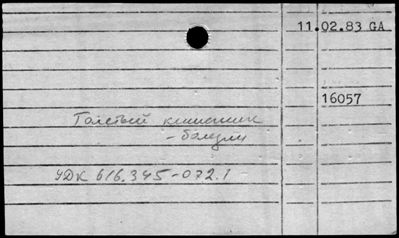 11.02.83 GA
16057
Толстый кишечник
- болезни
УДК 616.345-072.1